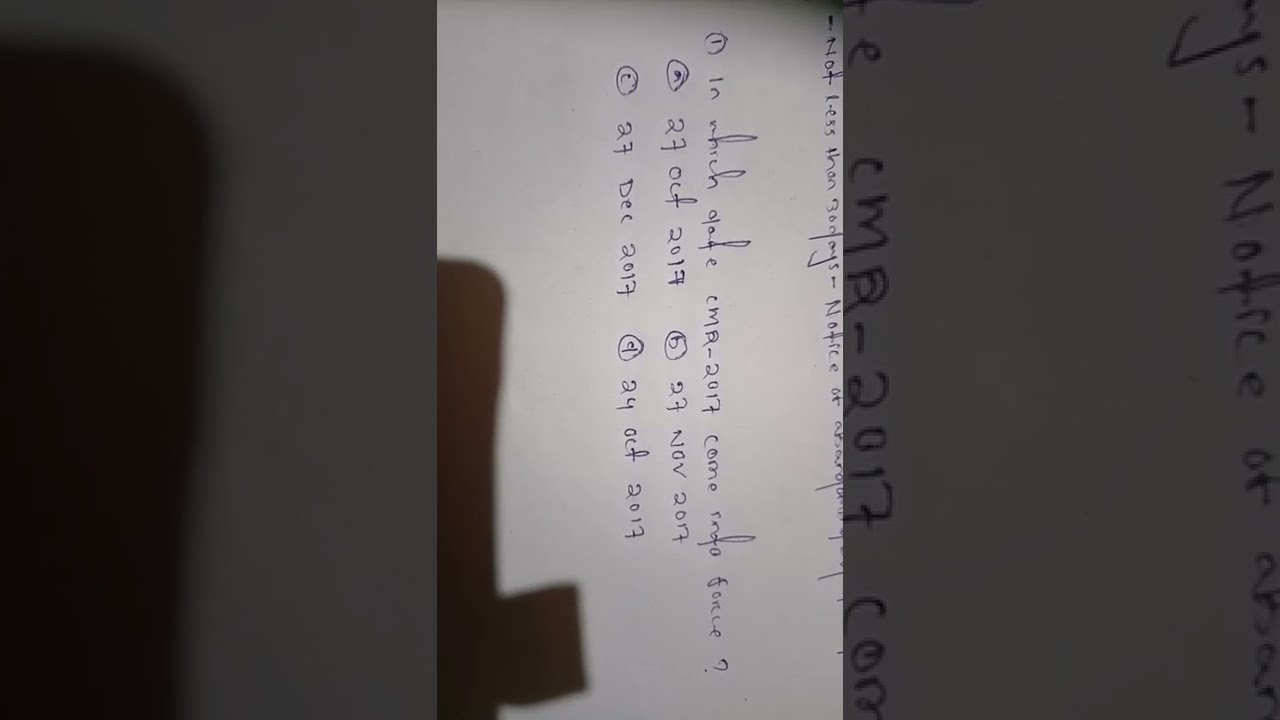 - Not less than 30 days - Notice of
① In which date CMR-2017 come into force ?
ⓐ 27 Oct 2017 ⓑ 27 Nov 2017
ⓒ 27 Dec 2017 ⓓ 24 Oct 2017